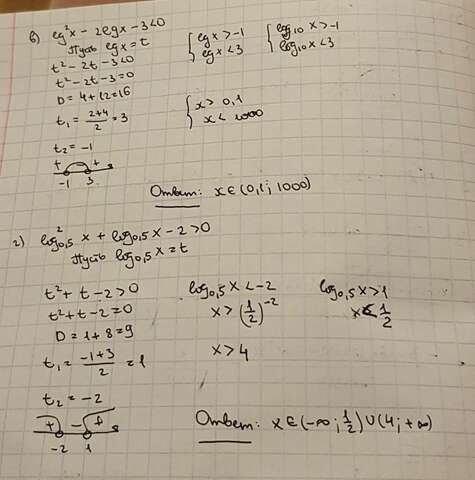 в) lg²x - 2lgx - 3<0
Пусть lgx = t
t² - 2t - 3<0
t² - 2t - 3=0
D = 4+12=16
t₁ = (2+4)/2 = 3
t₂ = -1
+ - +
-1 3
{ lgx > -1
lgx < 3
{ log₁₀ x > -1
log₁₀ x < 3
{ x > 0,1
x < 1000
Ответ: x∈(0,1; 1000)
г) log²₀,₅ x + log₀,₅ x - 2 >0
Пусть log₀,₅ x = t
t² + t - 2 > 0
t² + t - 2 = 0
D = 1 + 8 = 9
t₁ = (-1+3)/2 = 1
t₂ = -2
+ - +
-2 1
log₀,₅ x < -2
x > (1/2)⁻²
x > 4
log₀,₅ x > 1
x < 1/2
Ответ: x∈(-∞; 1/2)∪(4; +∞)